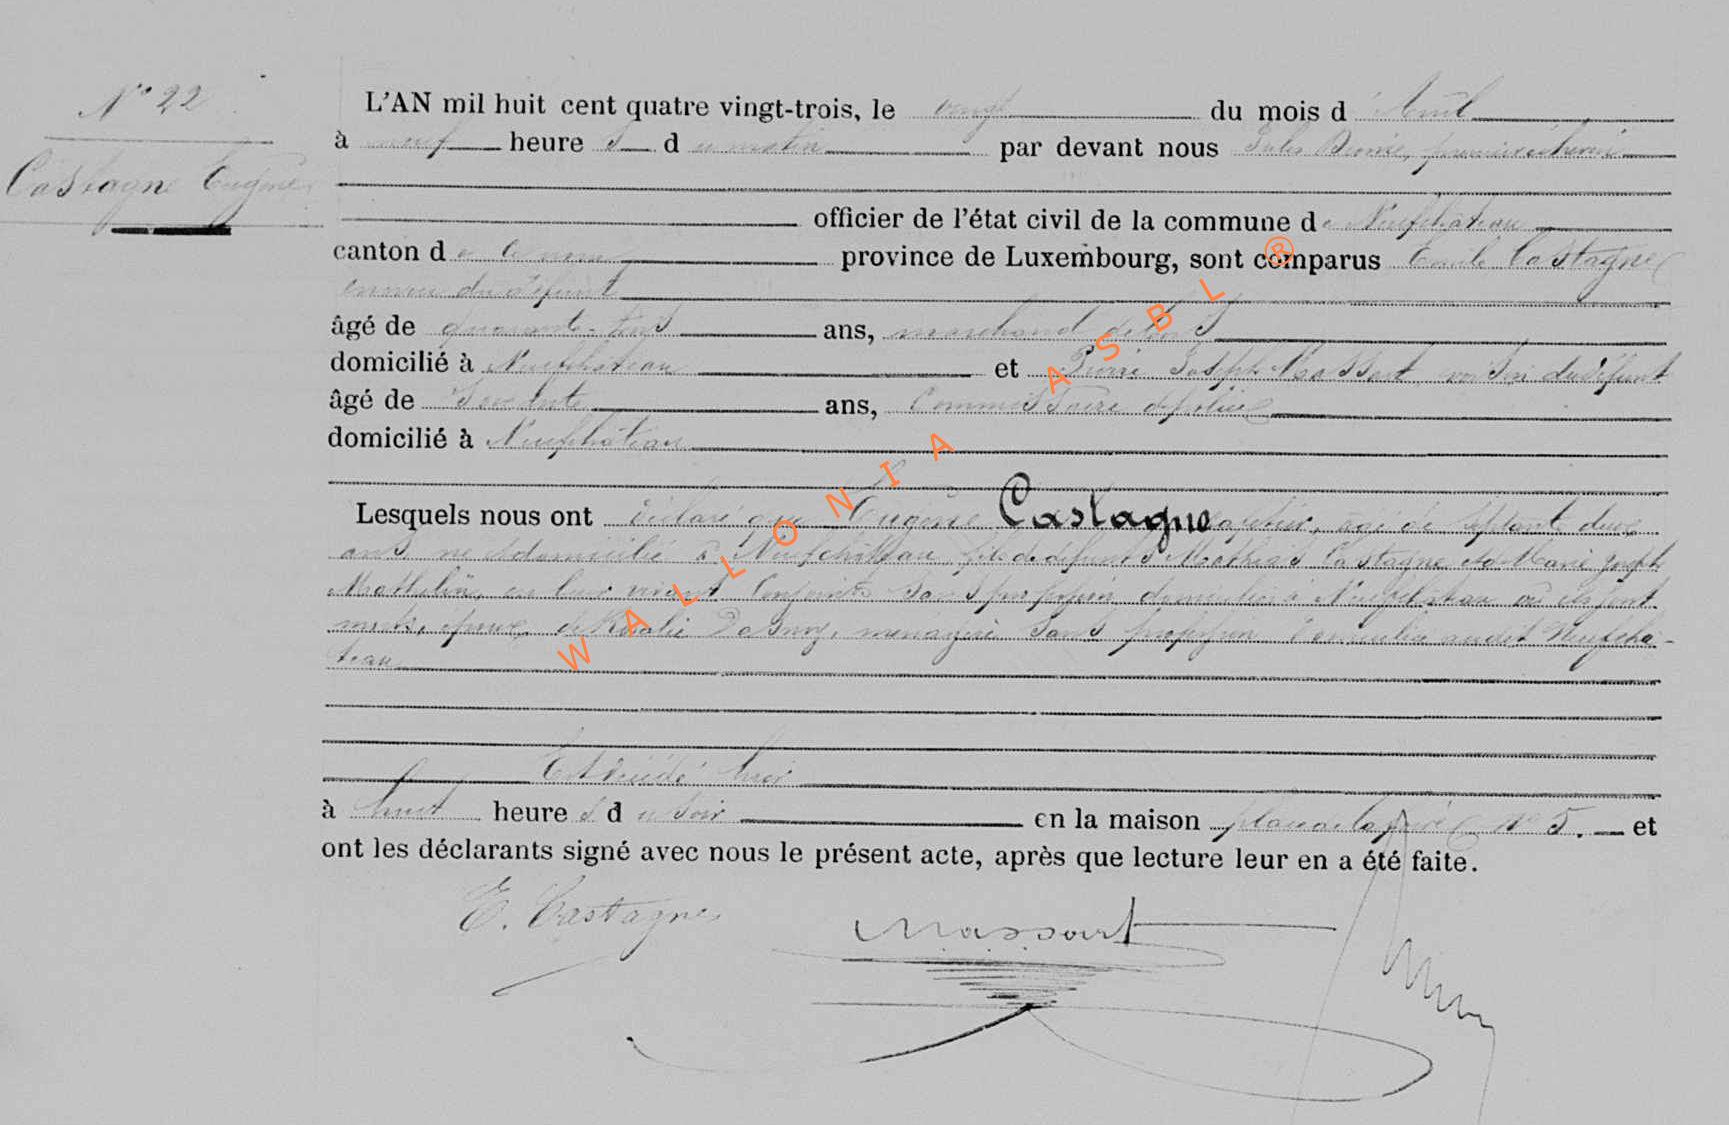 N° 22
Castagne Eugène
L'AN mil huit cent quatre vingt-trois, le vingt du mois d'Avril
à neuf heures du matin par devant nous Jules premier échevin
officier de l'état civil de la commune de Neufchateau
canton de province de Luxembourg, sont comparus Emile Castagne
du défunt
âgé de quarante-trois ans, marchand
domicilié à Neufchâteau et Pierre Joseph Massart, voisin du défunt
âgé de soixante ans, Commissaire de police
domicilié à Neufchâteau
Lesquels nous ont déclaré que Eugène Castagne cafetier, âgé de septante deux
ans né et domicilié à Neufchâteau, fils de défunts Mathias Castagne et de Marie Joseph
Mathelin, en leur vivant Conjoints sans profession, domiciliés à Neufchâteau où ils sont
morts, époux de Rosalie ménagère sans profession domiciliée audit Neufchâ-
teau
Est décédé hier
à huit heures du soir en la maison place N° 5. et
ont les déclarants signé avec nous le présent acte, après que lecture leur en a été faite.
E. Castagne
Massart
WALLONIA ASBL ®